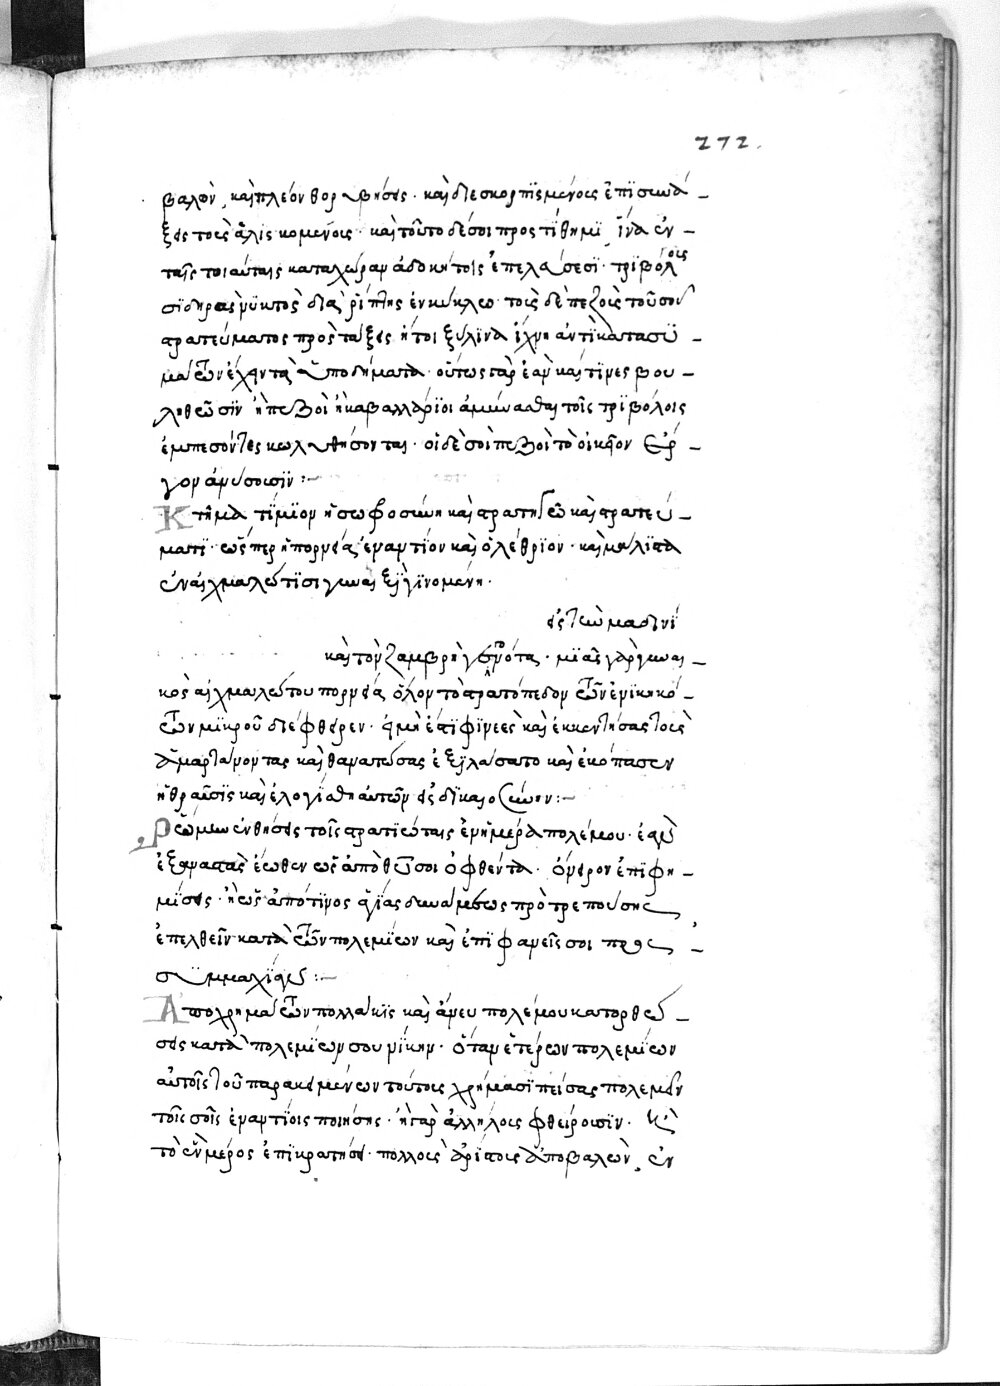 272.
βαλὼν, καὶ πλέον θορυβήσεις· καὶ διεσκορπϊσμένοις ἐπϊσυνά-
ξεις τοὺς ἁλϊσκομένοις· καὶ τοῦτο δέ σοι προστϊθημϊ, ἵνα ἐν-
ταῖς τοιαύταις καταχώραν ἀδοκήτοις ἐπελάσεσϊ· τρϊβόλοις
σϊδηρὰς νϋκτὸς διαῤῥίπτης ἐν κύκλω· τοῖς δὲ πεζοῖς τοῦ σοῦ
στρατεύματος προστάξεις ἤτοι ξύλϊνα ἴχνη ἀντϊκατασϋ-
μάτων ἐχῃντα ὑποδήματα· οὕτως γὰρ ἐὰν καί τϊνες βου-
ληθῶσϊν ἢ πεζοὶ ἢ καβαλλάρϊοι ἀμύνασθαι τοῖς τρϊβόλοις
ἐμπεσόντες κωλυθήσονται· οἱ δὲ σοὶ πεζοὶ τὸ οἰκεῖον ἔρ-
γον ἀνύσουσϊν:-
Κτῆμα τίμϊον ἡ σωφοσύνη καὶ στρατηγῶ καὶ στρατεύ-
ματϊ· ὥσπερ ἡ πορνεία ἐναντίον καὶ ὀλέθρϊον· καὶ μάλϊστα
ἐν αἰχμαλώτϊσι γυναιξὶ γϊνομένη·
εἰς τὼ μαδϊνϊ
καὶ τὸν ζαμβρὴ γεγονότας· μϊᾶς γὰρ γυναι-
κὸς αἰχμαλώτου πορνεία ὅλον τὸ στρατόπεδον τῶν ἐνϊκηκό-
των μϊκροῦ διέφθειρεν· εἰ μὴ ἐπϊ φϊνεὲς καὶ ἐκκεντήσας τοὺς
ἁμαρτάνοντας καὶ θανατώσας ἐξϊλάσατο καὶ ἐκόπασεν
ἡ θραῦσϊς καὶ ἐλογίσθη αὐτῶν εἰς δϊκαιοσύνην:-
Ῥώμην ἐνθήσεις τοῖς στρατϊώταις ἐν ἡμέρα πολέμου· ἐὰν
ἐξαναστὰς ἕωθεν ὡς ἀπὸ θεοῦ σοι ὀφθέντα· ὄνειρον ἐπϊφη-
μϊσεις· ἢ ὡς ἀπό τϊνος ἁγίας δυνάμεως προτρεπούσης
ἐπελθεῖν κατὰ τῶν πολεμϊων καὶ ἐπϊφανείς σοι πρὸς-
συϋμμαχϊαν:-
Ἀπὸ χρημάτων πολλάκϊς καὶ ἄνευ πολέμου κατορθώ-
σεις κατὰ πολεμϊων σου νϊκην· ὅταν ἑτέρων πολεμϊων
αὐτοῖς τοῦ παρακειμένων τούτοις χρήμασϊ πείσας πολεμεῖν
τοῖς σοῖς ἐναντϊοις ποιήσης· ἢ γὰρ ἀλλήλοις φθείρουσϊν· κὶ
τὸ ἓν μέρος ἐπϊκρατήσει· πολλοὺς ἀρϊστοις ἀποβαλὼν, ἐν